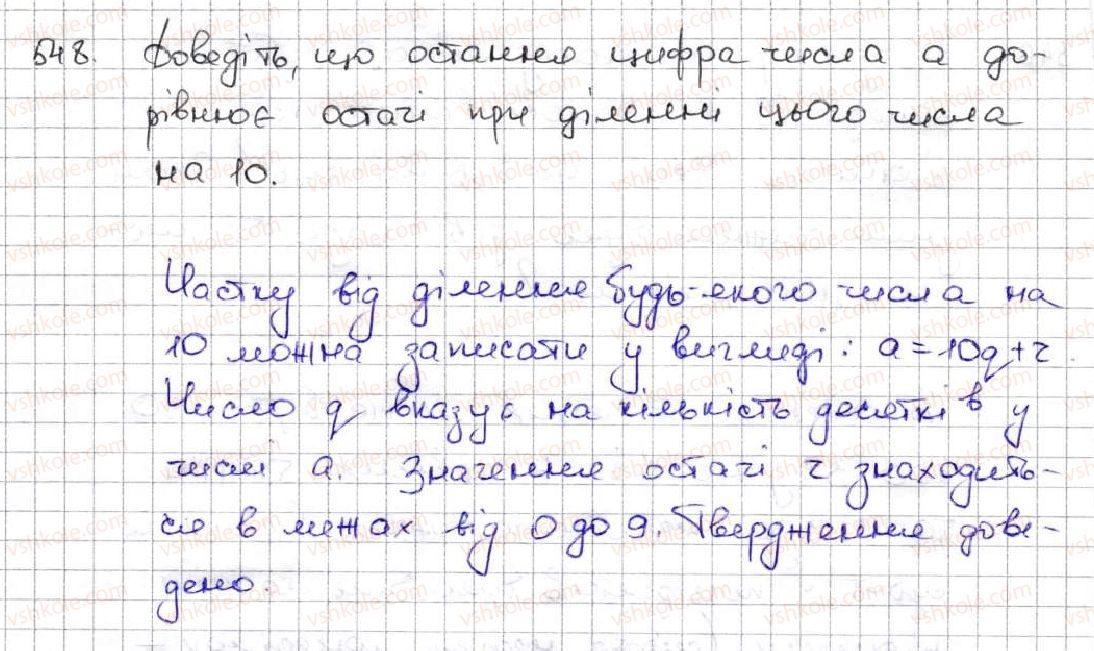 548. Доведіть, що остання цифра числа a до-
рівнює остачі при діленні цього числа
на 10.
Частку від ділення будь-якого числа на
10 можна записати у вигляді: a = 10q + r.
Число q вказує на кількість десятків у
числі a. Значення остачі r знаходить-
ся в межах від 0 до 9. Твердження дове-
дено.